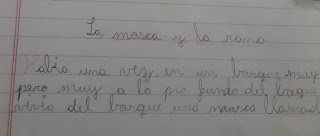 La marca y la rama
Habia una vez, en un barque muy
pero muy a lo pro fundo del barque
vivia del barque una maarca llamad